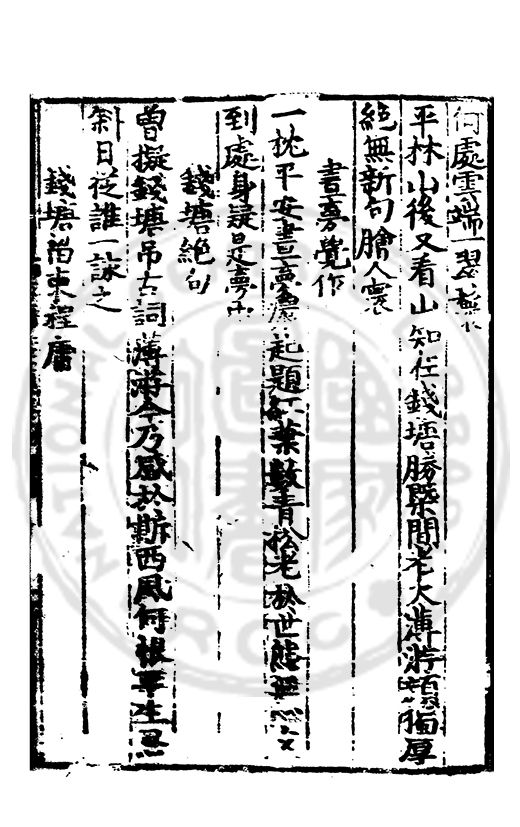 何處雲端一翠鬟
平林山後又看山知在錢塘勝槩間老大薄游頭獨厚
絕無新句膾人寰
晝夢覺作
一枕平安晝夢處起題紅葉數青松老於世態無心
到處身疑是夢中
錢塘絕句
曾擬錢塘弔古詞薄游今乃感於斯西風何恨畢生忍
斜日從誰一詠之
錢塘留東程庸